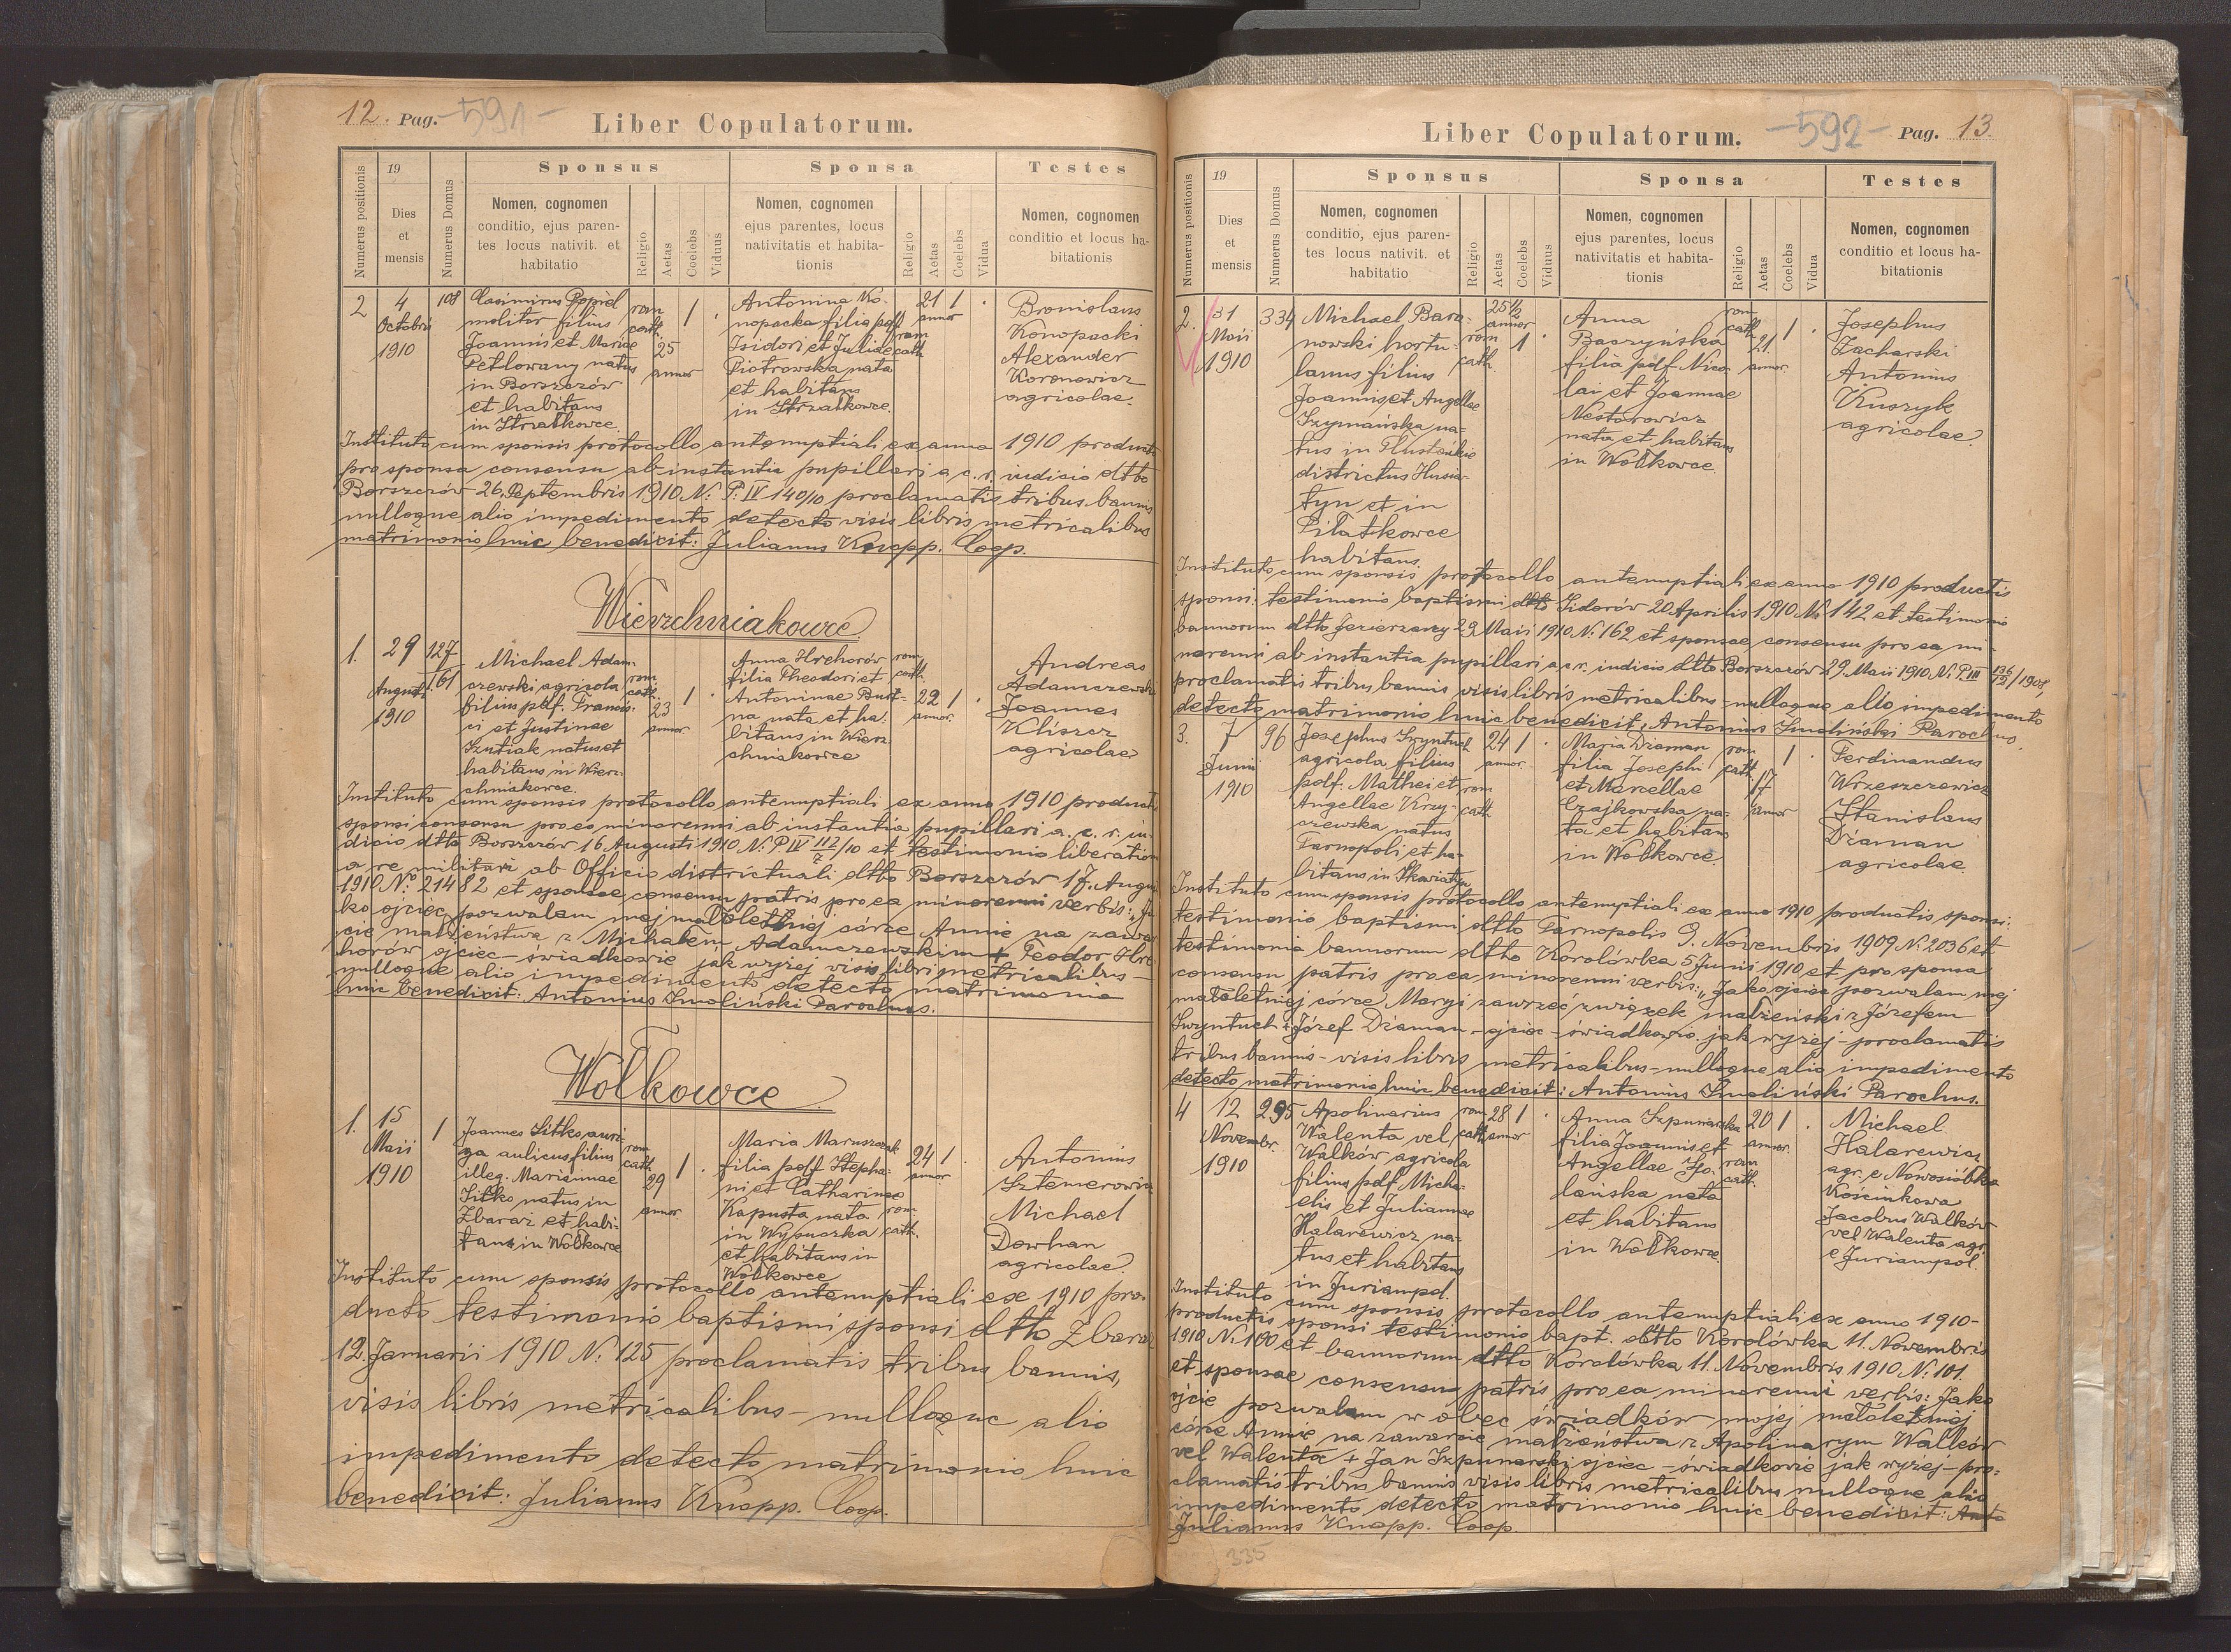 12. Pag. -591-
Liber Copulatorum.
Numerus positionis
19
Dies
et
mensis
Numerus Domus
Sponsus
Nomen, cognomen
conditio, ejus paren-
tes locus nativit. et
habitatio
Religio
Aetas
Coelebs
Viduus
Sponsa
Nomen, cognomen
ejus parentes, locus
nativitatis et habita-
tionis
Religio
Aetas
Coelebs
Vidua
Testes
Nomen, cognomen
conditio et locus ha-
bitationis
2
4
Octobris
1910
108
Casimirus Popiel
molitor filius
Joannis et Mariae
Petlowany natus
in Borszczów
et habitans
in Strzałkowce.
rom.
cath.
25
annor
1
.
Antonina Ko-
nopacka filia pdf
Isidori et Juliae
Piotrowska nata
et habitans
in Strzałkowce.
rom
cath
21
annor
1
.
Bronislaus
Konopacki
Alexander
Koronowicz
agricolae.
Instituto cum sponsis protocollo antenuptiali ex anno 1910 producto
pro sponsa consensu ab instantia pupillari a c. r. iudicio dtto
Borszczów 26. Septembris 1910 N: P. IV 140/10 proclamatis tribus bannis
nulloque alio impedimento detecto visis libris metricalibus
matrimonio huic benedixit: Julianus Knapp. Coop.
Wierzchniakowce
1.
29
Augusti
1910
127
161
Michael Adam-
czewski agricola
filius pdf. Francis-
ci et Justinae
Szutiak natus et
habitans in Wierz-
chniakowce.
rom.
cath.
23
annor
1
.
Anna Hrehorów
filia Theodori et
Antoninae Bust-
na nata et ha-
bitans in Wierz-
chniakowce
rom.
cath.
22
annor.
1
.
Andreas
Adamczewski
Joannes
Kliszcz
agricolae
Instituto cum sponsis protocollo antenuptiali ex anno 1910 producto
sponsi consensu pro eo minorenni ab instantia pupillari a. c. r. iu-
dicio dtto Borszczów 16 Augusti 1910 N: P. IV 112/7/10 et testimonio liberation
a re militari ab Officio districtuali dtto Borszczów 17. Augus
1910 No 21482 et sponsae consensu patris pro ea minorenni verbis: „Ja-
ko ojciec pozwalam mej małoletniej córce Annie na zawar
cie małżeństwa z Michałem Adamczewskim + Teodor Hre
horów ojciec – świadkowie jak wyżej visis libri metricalibus –
nulloque alio impedimento detecto matrimonio
huic benedixit: Antonius Smoliński Parochus.
Wołkowce
1.
15
Maii
1910
1
Joannes Sitko auri-
ga aulicus filius
illeg. Mariannae
Sitko natus in
Zbaraż et habi-
tans in Wołkowce
rom
cath.
29
annor
1
.
Maria Maruszczak
filia pdf Stepha-
ni et Catharinae
Kapusta nata
in Wysuczka
et habitans in
Wołkowce
rom.
cath.
24
annor
1
.
Antonius
Sztemerowicz
Michael
Dowhan
agricolae.
Instituto cum sponsis protocollo antenuptiali ex 1910 pro-
ducto testimonio baptismi sponsi dtto Zbaraż
12. Januarii 1910 N: 125 proclamatis tribus bannis,
visis libris metricalibus – nulloque alio
impedimento detecto matrimonio huic
benedixit: Julianus Knapp. Coop.
Liber Copulatorum.
-592-
Pag. 13.
Numerus positionis
19
Dies
et
mensis
Numerus Domus
Sponsus
Nomen, cognomen
conditio, ejus paren-
tes locus nativit. et
habitatio
Religio
Aetas
Coelebs
Viduus
Sponsa
Nomen, cognomen
ejus parentes, locus
nativitatis et habita-
tionis
Religio
Aetas
Coelebs
Vidua
Testes
Nomen, cognomen
conditio et locus ha-
bitationis
2.
31
Maii
1910
334
Michael Bara-
nowski hortu-
lanus filius
Joannis et Angellae
Szymańska na-
tus in
districtus Husia-
tyn et in
Piłatkowce
habitans.
25 1/2
annor
rom
cath.
1
.
Anna
Baczyńska
filia pdf Nico-
lai et Joannae
Nestorowicz
nata et habitans
in Wołkowce.
rom.
cath
21.
annor.
1
.
Josephus
Zacharski
Antonius
Kuszyk
agricolae.
Instituto cum sponsis protocollo antenuptiali ex anno 1910 productis
sponsi: testimonio baptismi dtto Sidorów 20 Aprilis 1910 No 142 et testimonio
bannorum dtto Jezierzany 29 Maii 1910 N: 162 et sponsae consensu pro ea mi-
norenni ab instantia pupillari a c. r. iudicio dtto Borszczów 29. Maii 1910. N: P. III 136/12/1908,
proclamatis tribus bannis visis libris metricalibus – nulloque alio impedimento
detecto matrimonio huic benedixit: Antonius Smoliński Parochus.
3.
7
Junii
1910
96
Josephus Swyntuch
agricola filius
pdf. Mathei et
Angellae Krzy-
czewska natus
Tarnopoli et ha-
bitans in Skowiatyn
24
annor.
rom
cath.
1
.
Maria Dżaman
filia Josephi
et Marcellae
Czajkowska na-
ta et habitans
in Wołkowce.
rom
cath.
17
annor
1
.
Ferdinandus
Wrzeszczewicz
Stanislaus
Dżaman
agricolae.
Instituto cum sponsis protocollo antenuptiali ex anno 1910 productis sponsi:
testimonio baptismi dtto Tarnopolis 9. Novembris 1909 N: 2036 et
testimonio bannorum dtto Korolówka 5 Junii 1910 et pro sponsa
consensu patris pro ea minorenni verbis: „Jako ojciec pozwalam mej
małoletniej córce Maryi zawrzeć związek małżeński z Józefem
Swyntuch + Józef Dżaman – ojciec – świadkowie jak wyżej – proclamatis
tribus bannis – visis libris metricalibus – nulloque alio impedimento
detecto matrimonio huic benedixit: Antonius Smoliński Parochus.
4
12
Novembr.
1910
295
Apolinarius
Walenta vel
Walków agricola
filius pdf. Micha-
elis et Juliannae
Halarewicz na-
tus et habitans
in Juriampol.
rom
cath.
28
annor
1
.
Anna Szpunarska
filia Joannis et
Angellae Ho-
lańska nata
et habitans
in Wołkowce.
rom
cath.
20
annor.
1
.
Michael
Halarewicz
agr. e Nowosiółka
Kościukowa
Jacobus Walków
vel Walenta agr.
e Juriampol.
Instituto cum sponsis protocollo antenuptiali ex anno 1910 –
productis sponsi testimonio bapt. dtto Korolówka 11. Novembris
1910 N. 100 et bannorum dtto Korolówka 11. Novembris 1910 N: 101.
et sponsae consensu patris pro ea minorenni verbis: Jako
ojcie pozwalam w obec świadków mojej małoletniej
córce Annie na zawarcie małżeństwa z Apolinarym Walków
vel Walenta + Jan Szpunarski ojciec – świadkowie jak wyżej – pro-
clamatis tribus bannis visis libris metricalibus nulloque alio
impedimento detecto matrimonio huic benedixit: Anto
Julianus Knapp. Coop.
335